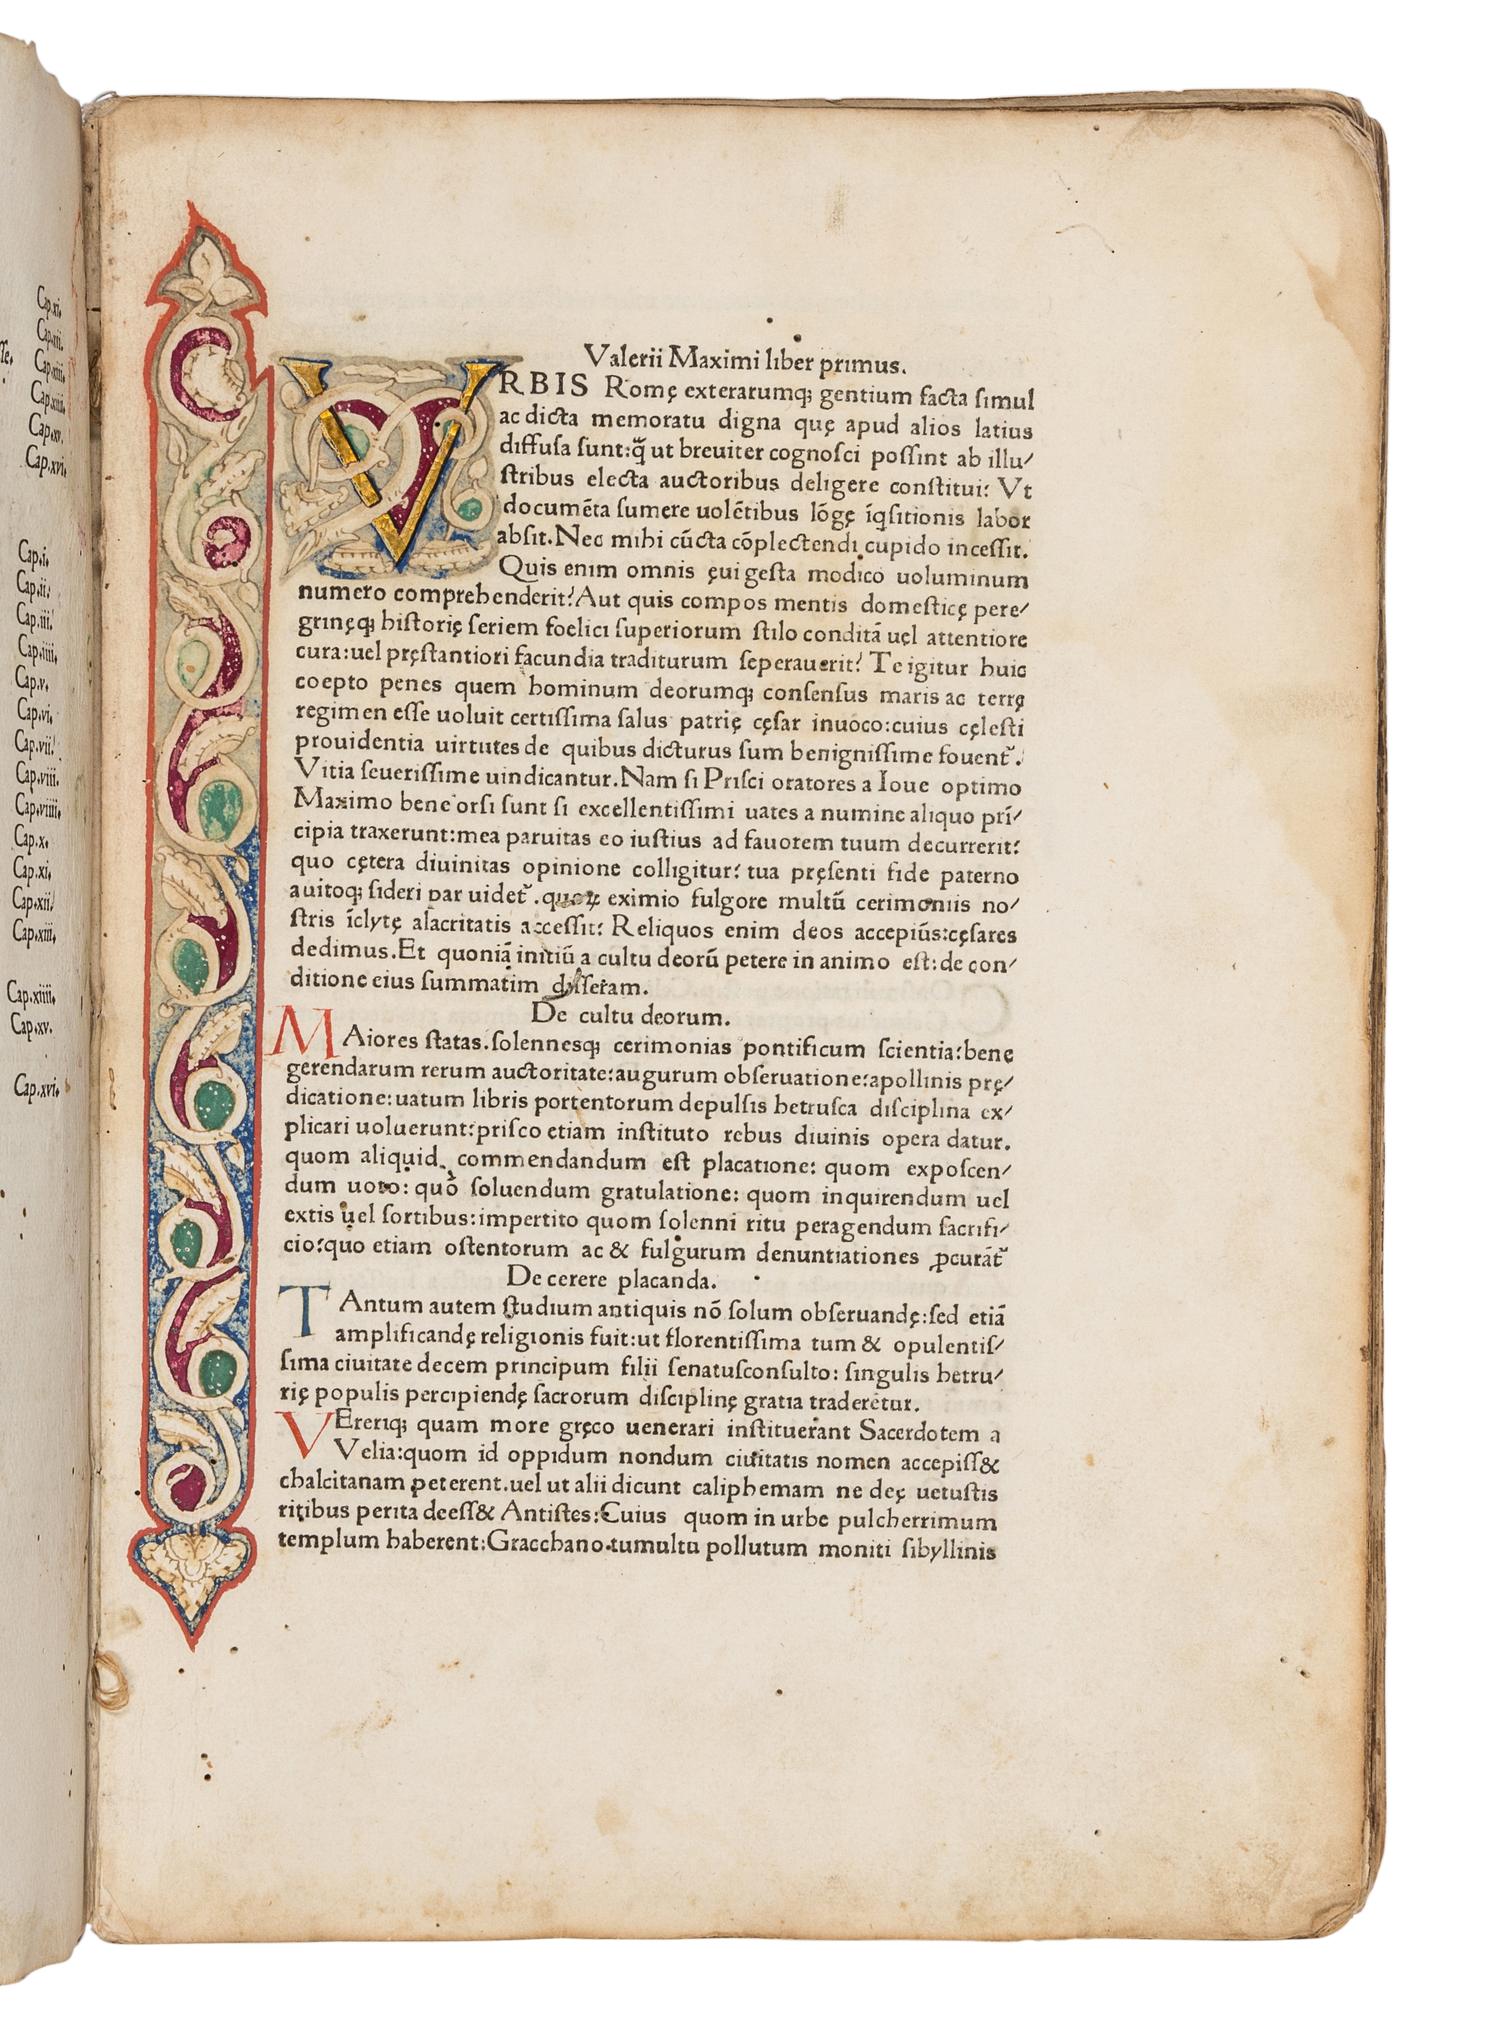 Cap.xi.
Cap.xii.
Cap.xiii.
Cap.xiiii.
Cap.xv.
Cap.xvi.
Cap.i.
Cap.ii.
Cap.iii.
Cap.iiii.
Cap.v.
Cap.vi.
Cap.vii.
Cap.viii.
Cap.viiii.
Cap.x.
Cap.xi.
Cap.xii.
Cap.xiii.
Cap.xiiii.
Cap.xv.
Cap.xvi.
Valerii Maximi liber primus.
VRBIS Romę exterarumq; gentium facta ſimul
ac dicta memoratu digna quę apud alios latius
diffuſa ſunt:q̃ ut breuiter cognoſci poſſint ab illu/
ſtribus electa auctoribus deligere conſtitui: Vt
documẽta ſumere uolẽtibus lõgę ĩqſitionis labor
abſit.Nec mihi cũcta cõplectendi cupido inceſſit.
Quis enim omnis ęui geſta modico uoluminum
numero comprehenderit?Aut quis compos mentis domeſticę pere/
grinęq; hiſtorię ſeriem foelici ſuperiorum ſtilo conditã uel attentiore
cura:uel pręſtantiori facundia traditurum ſeperauerit? Te igitur huic
coepto penes quem hominum deorumq; conſenſus maris ac terrę
regimen eſſe uoluit certiſſima ſalus patrię cęſar inuoco:cuius cęleſti
prouidentia uirtutes de quibus dicturus ſum benigniſſime fouent᷑.
Vitia ſeueriſſime uindicantur.Nam ſi Priſci oratores a Ioue optimo
Maximo bene orſi ſunt ſi excellentiſſimi uates a numine aliquo prĩ/
cipia traxerunt:mea paruitas eo iuſtius ad fauorem tuum decurrerit:
quo cętera diuinitas opinione colligitur: tua pręſenti fide paterno
auitoq; ſideri par uidet᷑.quoꝝ eximio fulgore multũ cerimoniis no/
ſtris ĩclytę alacritatis acceſſit: Reliquos enim deos accepiũs:cęſares
dedimus.Et quoniã initiũ a cultu deorũ petere in animo eſt:de con/
ditione eius ſummatim diſſeram.
De cultu deorum.
MAiores ſtatas.ſolenneſq; cerimonias pontificum ſcientia:bene
gerendarum rerum auctoritate:augurum obſeruatione:apollinis prę/
dicatione:uatum libris portentorum depulſis hetruſca diſciplina ex/
plicari uoluerunt:priſco etiam inſtituto rebus diuinis opera datur.
quom aliquid commendandum eſt placatione: quom expoſcen/
dum uoto: quõ ſoluendum gratulatione: quom inquirendum uel
extis uel ſortibus:impertito quom ſolenni ritu peragendum ſacrifi/
cio:quo etiam oſtentorum ac & fulgurum denuntiationes ꝓcurãt᷑
De cerere placanda.
TAntum autem ſtudium antiquis nõ ſolum obſeruandę:ſed etiã
amplificandę religionis fuit:ut florentiſſima tum & opulentiſ/
ſima ciuitate decem principum filii ſenatuſconſulto: ſingulis hetru/
rię populis percipiendę ſacrorum diſciplinę gratia traderetur.
VEreriq; quam more gręco uenerari inſtituerant Sacerdotem a
Velia:quom id oppidum nondum ciuitatis nomen accepiſſ&
chalcitanam peterent.uel ut alii dicunt caliphemam ne deę uetuſtis
ritibus perita deeſſ& Antiſtes:Cuius quom in urbe pulcherrimum
templum haberent:Gracchano tumultu pollutum moniti ſibyllinis